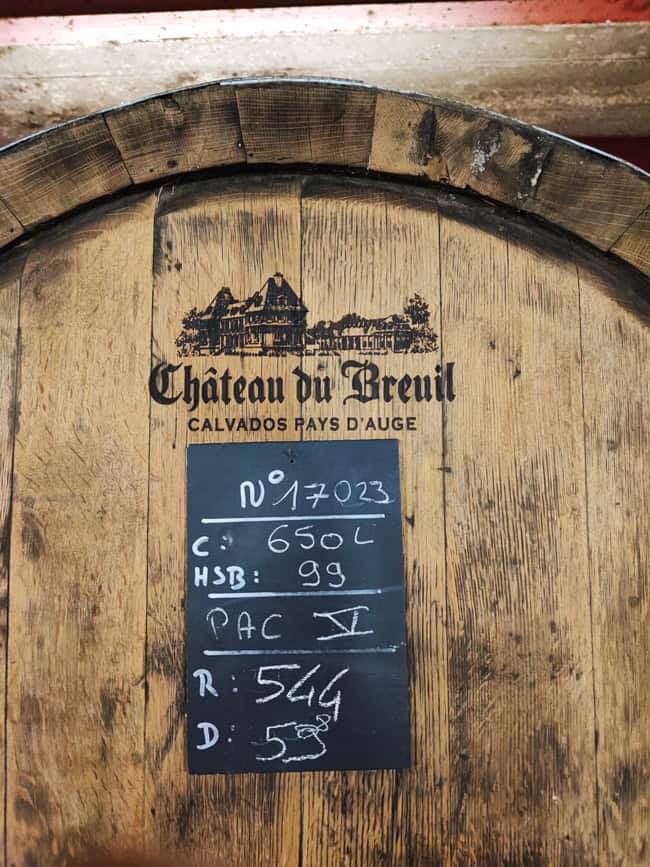 Château du Breuil
CALVADOS PAYS D'AUGE
N° 17023
C: 650L
HSB: 99
PAC VI
R: 544
D: 59⁸